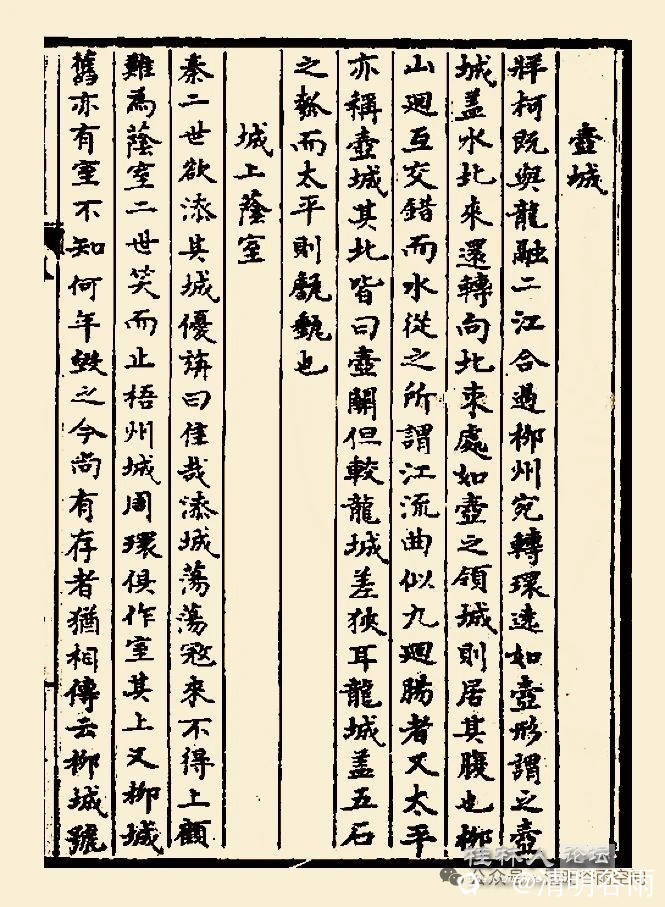 壺城
牂柯既與龍融二江合過柳州宛轉環遶如壺形謂之壺
城蓋水北來還轉向北來處如壺之領城則居其腹也柳
山迴互交錯而水從之所謂江流曲似九迴腸者又太平
亦稱壺城其北皆曰壺關但較龍城差狹耳龍城蓋五石
之瓠而太平則甒也
城上蔭室
秦二世欲漆其城優旃曰佳哉漆城蕩蕩寇來不得上顧
難為蔭室二世笑而止梧州城周環俱作室其上又柳城
舊亦有室不知何年毀之今尚有存者猶相傳云柳城號
桂林人论坛
公众号
@清明谷雨